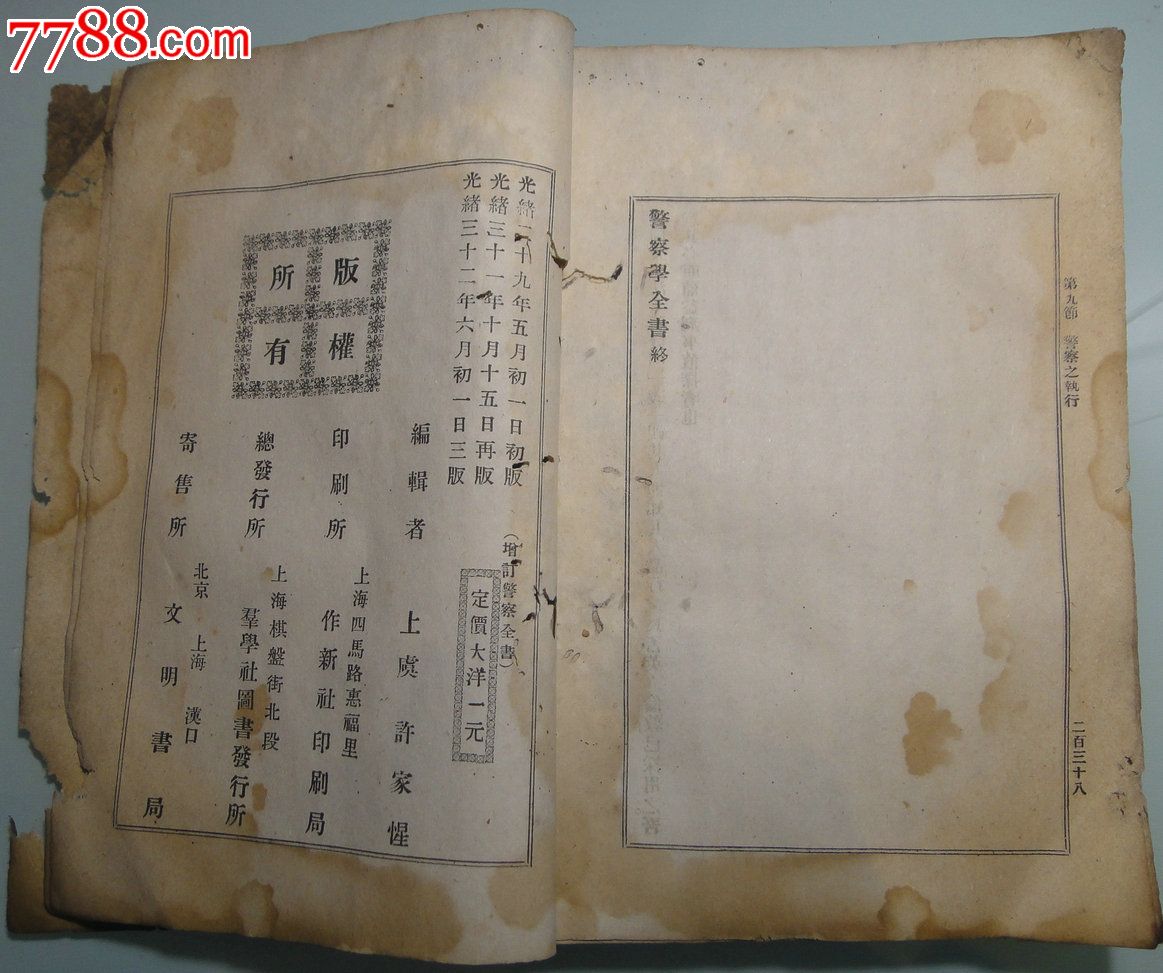 7788.com
第九節 警察之執行
二百三十八
警察學全書終
光緒二十九年五月初一日初版
光緒三十一年十月十五日再版
光緒三十二年六月初一日三版
(增訂警察全書)
定價大洋一元
版權
所有
編輯者 上虞許家惺
印刷所 上海四馬路惠福里
作新社印刷局
總發行所 上海棋盤街北段
羣學社圖書發行所
寄售所 北京 上海 漢口
文明書局